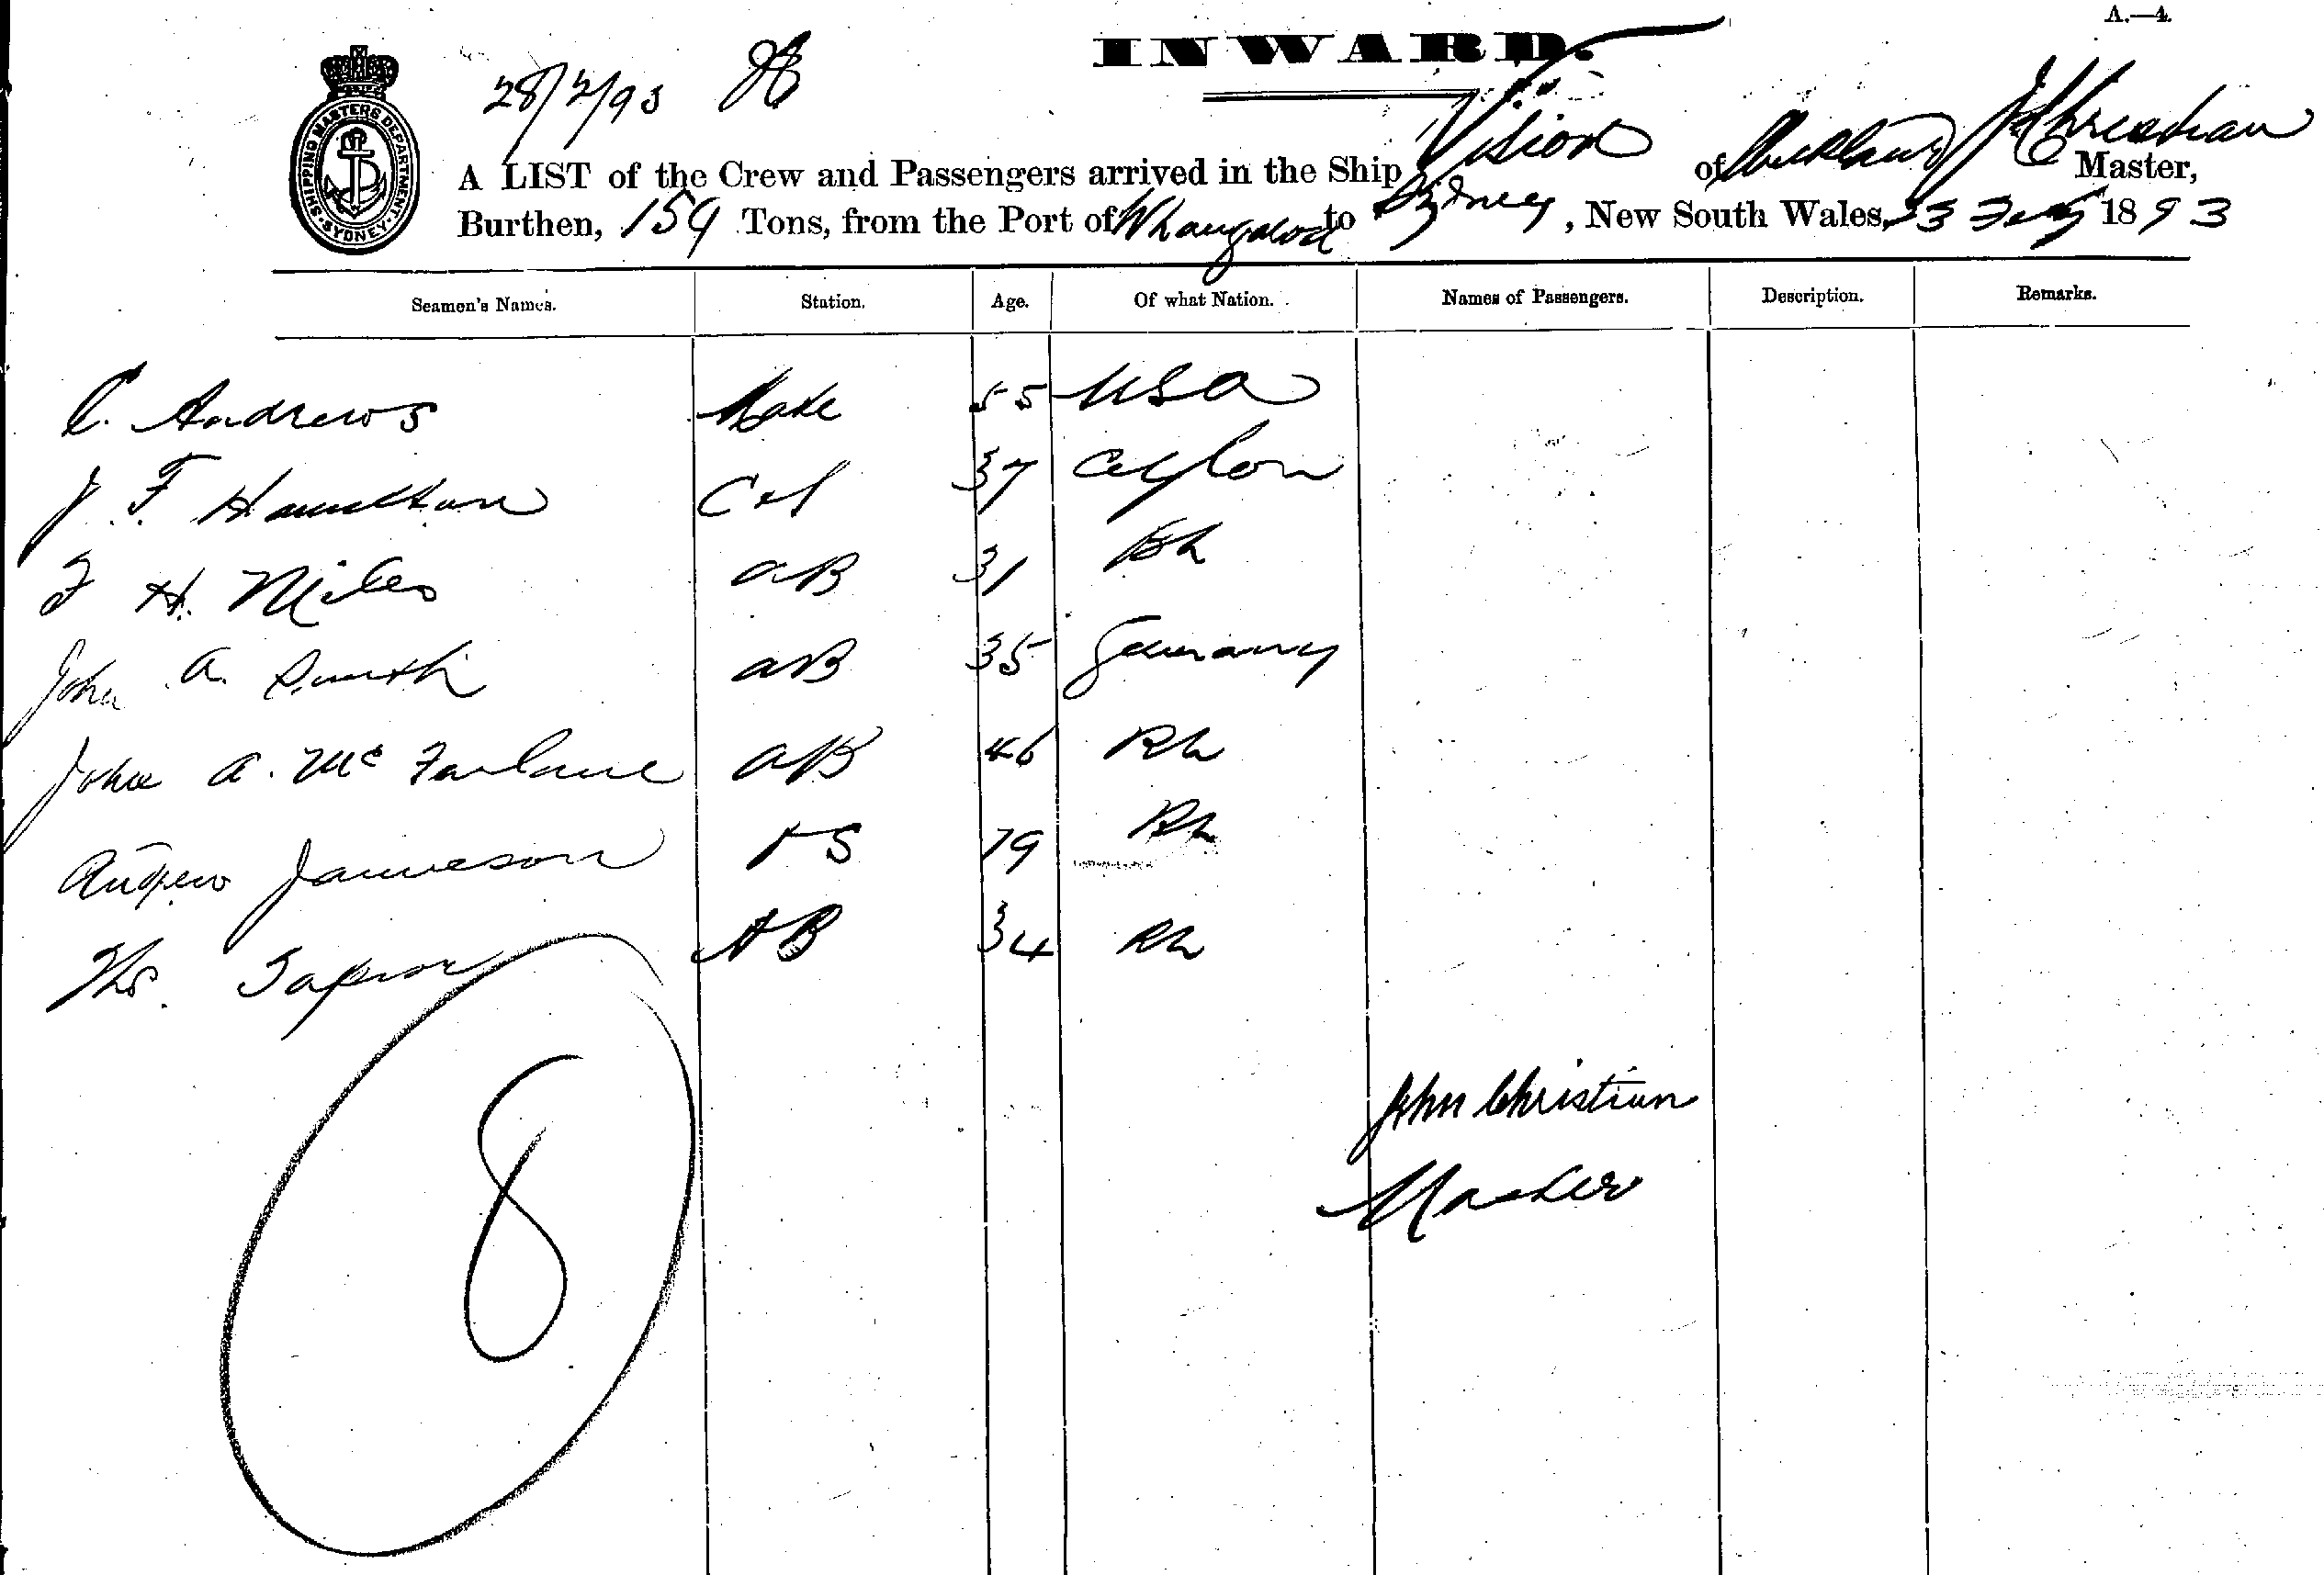 A.—4.
INWARD.
28/2/93
SHIPPING MASTERS DEPARTMENT. SYDNEY
A LIST of the Crew and Passengers arrived in the Ship Vision of Auckland J Christian Master,
Burthen, 159 Tons, from the Port of Whangaroa to Sydney, New South Wales, 23 Feby 1893
Seamen's Names. Station. Age. Of what Nation. Names of Passengers. Description. Remarks.
C. Andrews Mate 55 USA
J. F. Hamilton C&S 37 Ceylon
F H. Miles AB 31 Bh
John A. Smith AB 35 Germany
John A. Mc Farlane AB 46 Bh
Andrew Jamieson OS 19 Bh
Thos. AB 34 Bh
John Christian
Master
8